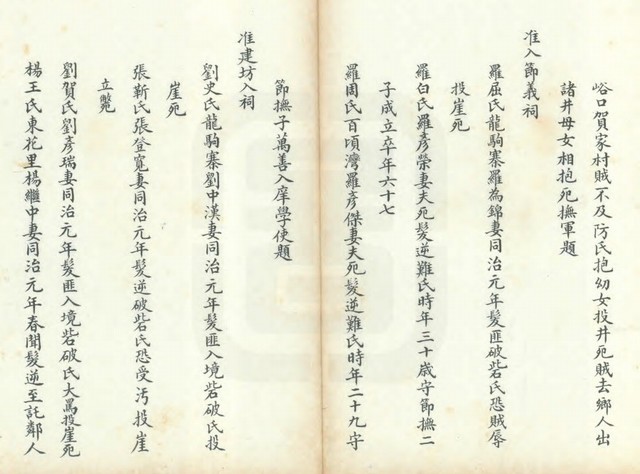 峪口賀家村賊不及防氏抱幼女投井死賊去鄉人出
諸井母女相抱死撫軍題
准入節義祠
羅屈氏龍駒寨羅為錦妻同治元年髮匪入境砦破氏恐賊辱
投崖死
羅白氏羅彥榮妻夫死髮逆難氏時年三十歲守節撫二
子成立卒年六十七
羅周氏百頃灣羅彥傑妻夫死髮逆難氏時年二十九守
節撫子萬善入庠學使題
准建坊入祠
劉史氏龍駒寨劉中漢妻同治元年髮匪入境砦破氏投
崖死
張靳氏張登寬妻同治元年髮逆破砦氏恐受汚投崖
立斃
劉賀氏劉彥瑞妻同治元年髮匪入境砦破氏大罵投崖死
楊王氏東花里楊繼中妻同治元年春聞髮逆至託鄰人